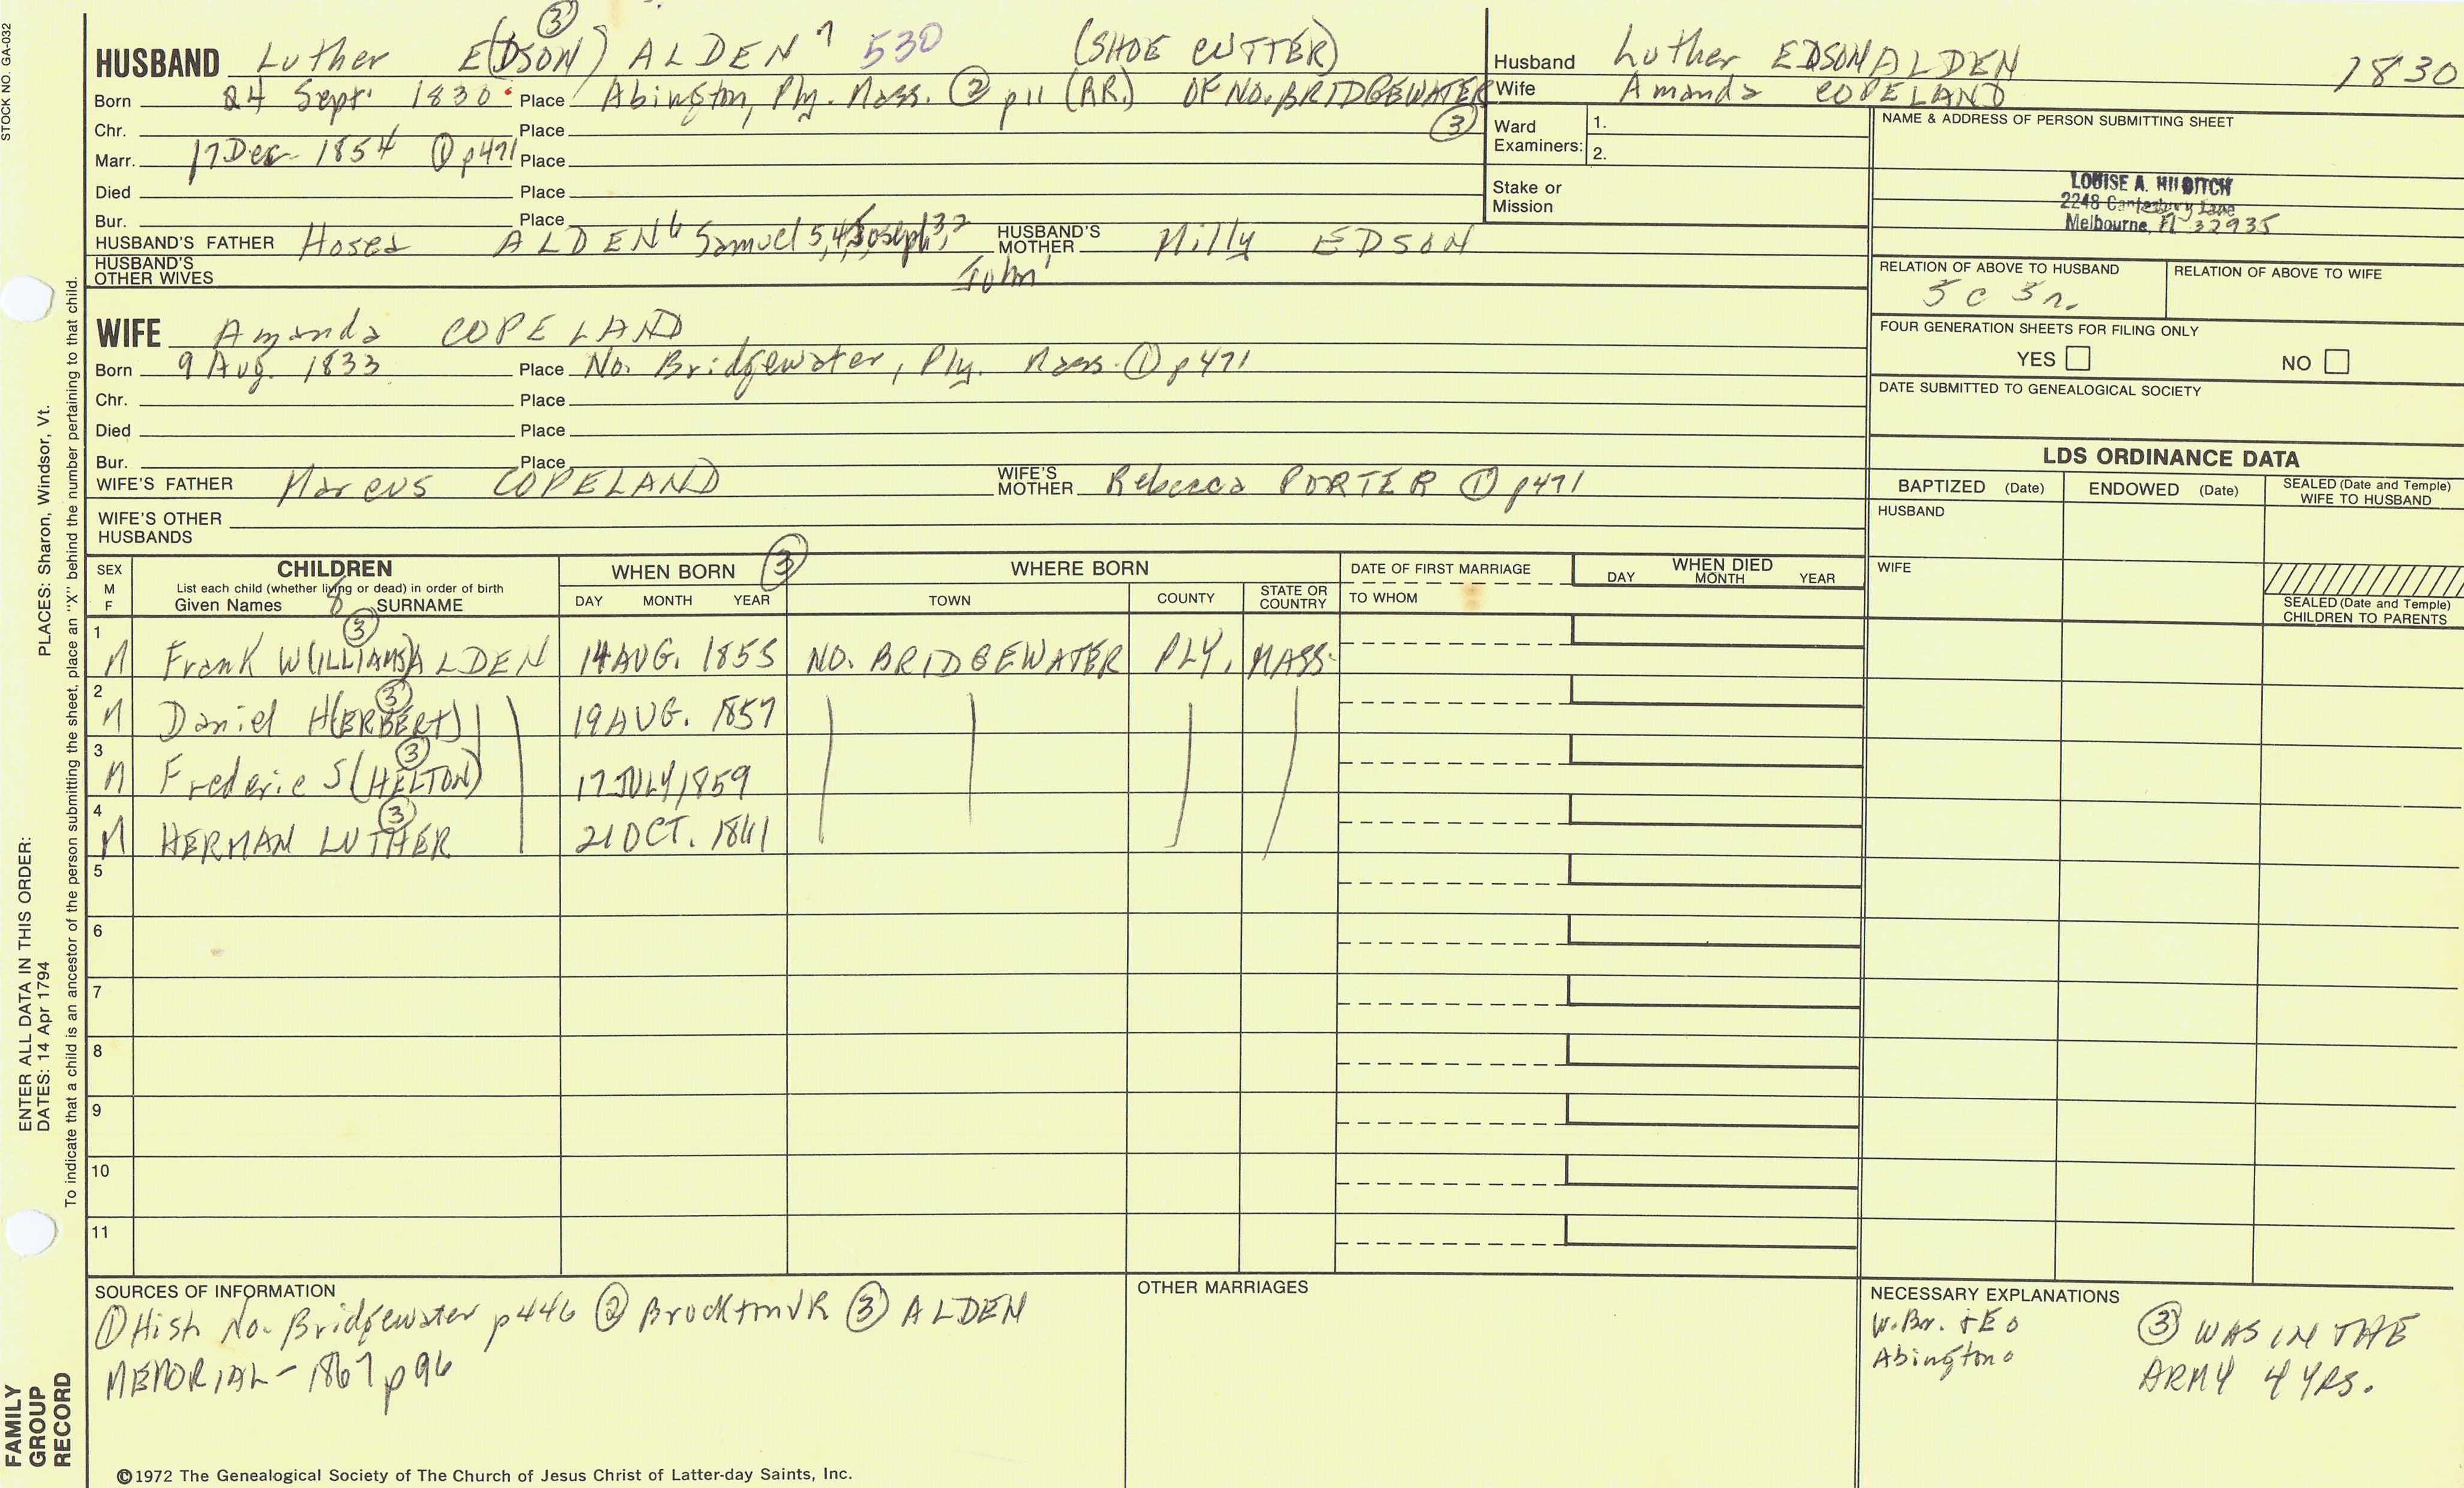 STOCK NO. GA-032
HUSBAND Luther E(DSON) ③ ALDEN 7 530 (SHOE CUTTER)
Born 24 Sept. 1830 Place Abington, Ply. Mass. ② p11 (RR.) OF NO. BRIDGEWATER ③
Chr. Place
Marr. 17 Dec. 1854 ① p471 Place
Died Place
Bur. Place
HUSBAND'S FATHER Hosea ALDEN 6 Samuel 5,4, Joseph 3,2 John 1 HUSBAND'S MOTHER Milly EDSON
HUSBAND'S OTHER WIVES
WIFE Amanda COPELAND
Born 9 Aug. 1833 Place No. Bridgewater, Ply. Mass. ① p471
Chr. Place
Died Place
Bur. Place
WIFE'S FATHER Marcus COPELAND WIFE'S MOTHER Rebecca PORTER ① p471
WIFE'S OTHER HUSBANDS
Husband Luther EDSON ALDEN 1830
Wife Amanda COPELAND
Ward Examiners: 1.
2.
Stake or Mission
NAME & ADDRESS OF PERSON SUBMITTING SHEET
LOUISE A. HILDITCH
2248 Canterbury Lane
Melbourne, Fl 32935
RELATION OF ABOVE TO HUSBAND RELATION OF ABOVE TO WIFE
5 c 3 r.
FOUR GENERATION SHEETS FOR FILING ONLY
YES NO
DATE SUBMITTED TO GENEALOGICAL SOCIETY
LDS ORDINANCE DATA
BAPTIZED (Date) ENDOWED (Date) SEALED (Date and Temple) WIFE TO HUSBAND
HUSBAND
WIFE
SEALED (Date and Temple) CHILDREN TO PARENTS
SEX M F
CHILDREN
List each child (whether living or dead) in order of birth
Given Names 8 SURNAME
WHEN BORN ③ WHERE BORN
DAY MONTH YEAR TOWN COUNTY STATE OR COUNTRY
DATE OF FIRST MARRIAGE
TO WHOM
WHEN DIED
DAY MONTH YEAR
1 M Frank W(ILLIAMS) ③ ALDEN 14 AUG. 1855 NO. BRIDGEWATER PLY. MASS.
2 M Daniel H(ERBERT) ③ 19 AUG. 1857
3 M Frederic S(HELTON) ③ 17 JULY 1859
4 M HERMAN LUTHER ③ 21 OCT. 1861
5
6
7
8
9
10
11
SOURCES OF INFORMATION
① Hist. No. Bridgewater p446 ② Brockton VR ③ ALDEN
MEMORIAL - 1867 p96
OTHER MARRIAGES
NECESSARY EXPLANATIONS
W. Br. + E
Abington
③ WAS IN THE
ARMY 4 YRS.
©1972 The Genealogical Society of The Church of Jesus Christ of Latter-day Saints, Inc.
FAMILY GROUP RECORD
ENTER ALL DATA IN THIS ORDER:
DATES: 14 Apr 1794
PLACES: Sharon, Windsor, Vt.
To indicate that a child is an ancestor of the person submitting the sheet, place an "X" behind the number pertaining to that child.